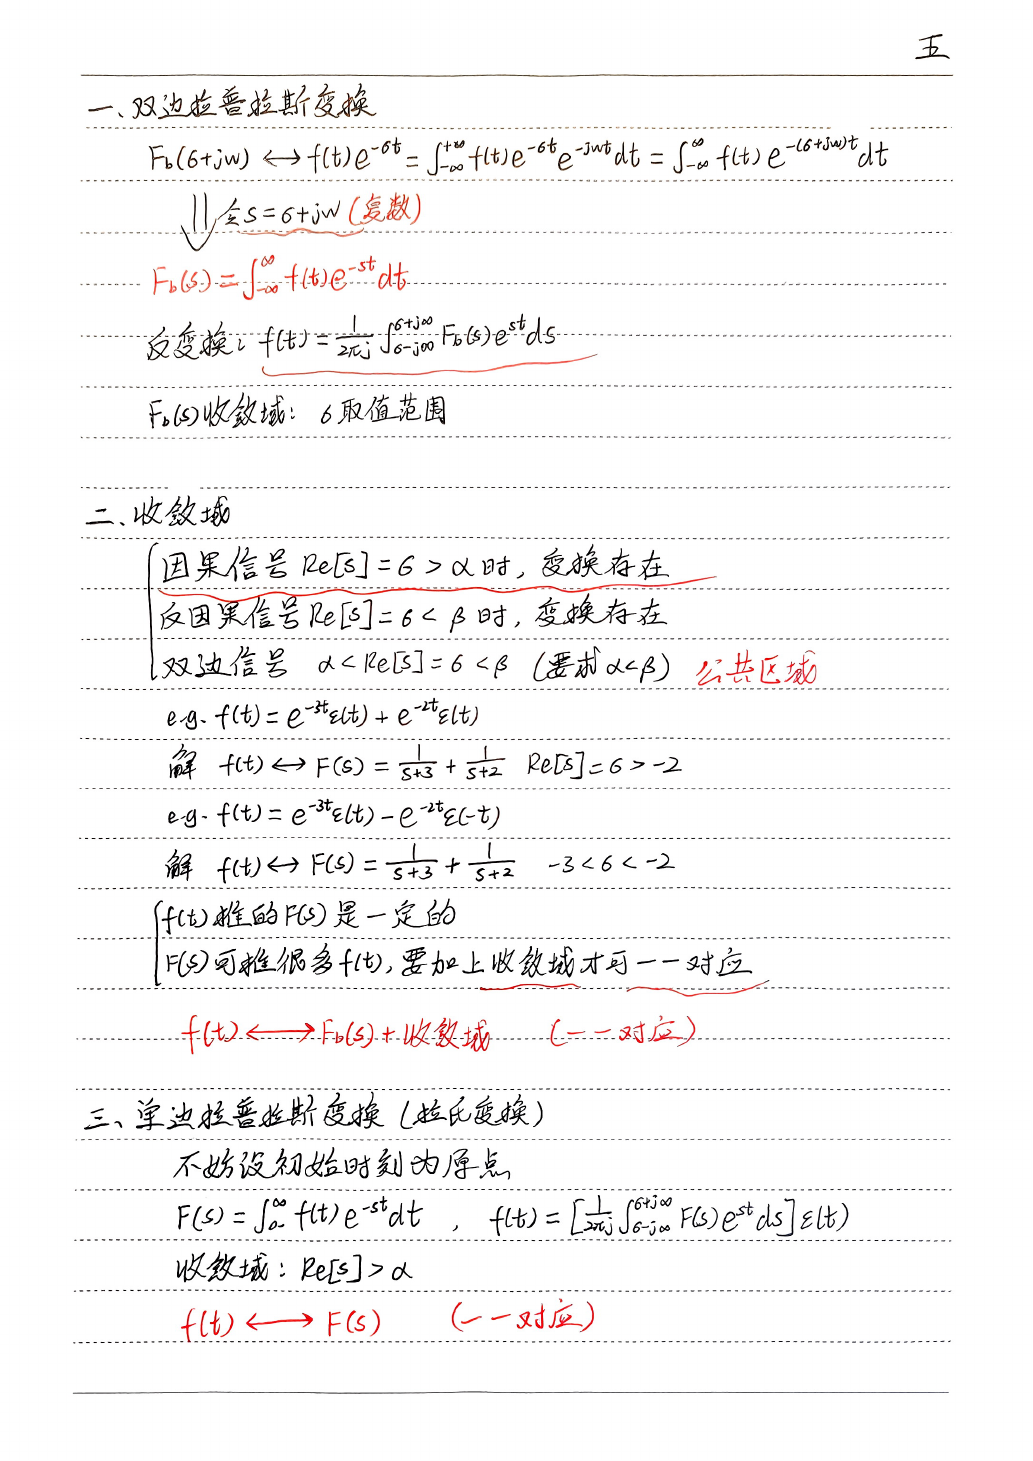 五
一、双边拉普拉斯变换
F_b(σ+jw) ↔ f(t)e^{-σt} = ∫_{-∞}^{+∞} f(t)e^{-σt}e^{-jwt}dt = ∫_{-∞}^{∞} f(t) e^{-(σ+jw)t}dt
⇓ 令s=σ+jw(复数)
F_b(s) = ∫_{-∞}^{∞} f(t)e^{-st}dt
反变换: f(t) = \frac{1}{2πj} ∫_{σ-j∞}^{σ+j∞} F_b(s)e^{st}ds
F_b(s)收敛域: σ取值范围
二、收敛域
因果信号 Re[s]=σ>α时, 变换存在
反因果信号Re[s]=σ<β时, 变换存在
双边信号 α<Re[s]=σ<β (要求α<β) 公共区域
e.g. f(t)=e^{-3t}ε(t)+e^{-2t}ε(t)
解 f(t)↔F(s)=\frac{1}{s+3}+\frac{1}{s+2} Re[s]=σ>-2
e.g. f(t)=e^{-3t}ε(t)-e^{-2t}ε(-t)
解 f(t)↔F(s)=\frac{1}{s+3}+\frac{1}{s+2} -3<σ<-2
f(t)推的F(s)是一定的
F(s)可推很多f(t), 要加上收敛域才可一一对应
f(t)⟷F_b(s)+收敛域 (一一对应)
三、单边拉普拉斯变换(拉氏变换)
不妨设初始时刻为原点
F(s)=∫_{0-}^{∞} f(t)e^{-st}dt , f(t)=[\frac{1}{2πj}∫_{σ-j∞}^{σ+j∞}F(s)e^{st}ds]ε(t)
收敛域: Re[s]>α
f(t)⟷F(s) (一一对应)